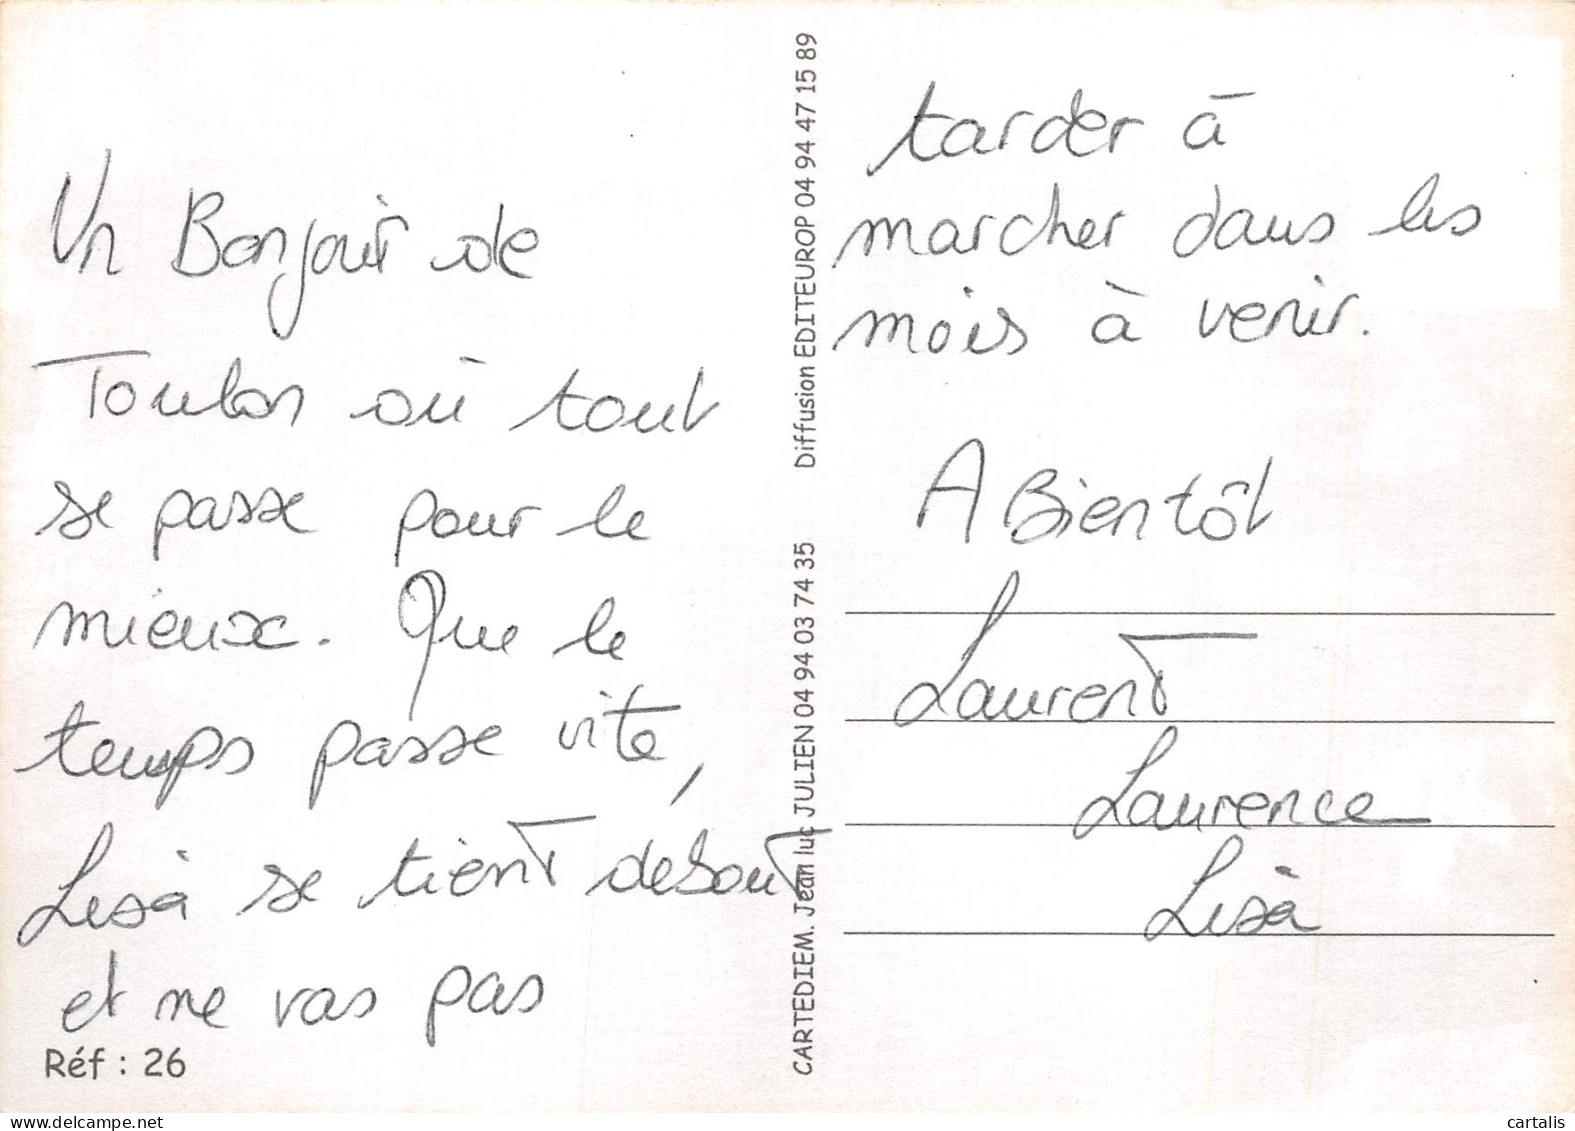 Un Bonjour de
Toulon où tout
se passe pour le
mieux. Que le
temps passe vite,
Lisà se tient debout
et ne vas pas
Réf : 26
CARTEDIEM. Jean luc JULIEN 04 94 03 74 35
Diffusion EDITEUROP 04 94 47 15 89
tarder à
marcher dans les
mois à venir.
A Bientôt
Laurent
Laurence
Lisà
delcampe.net
cartalis